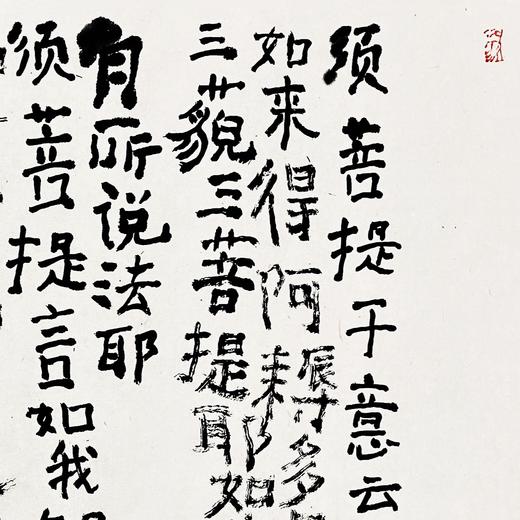 须菩提于意云
如来得阿耨多
三藐三菩提耶如
有所说法耶
须菩提言如我